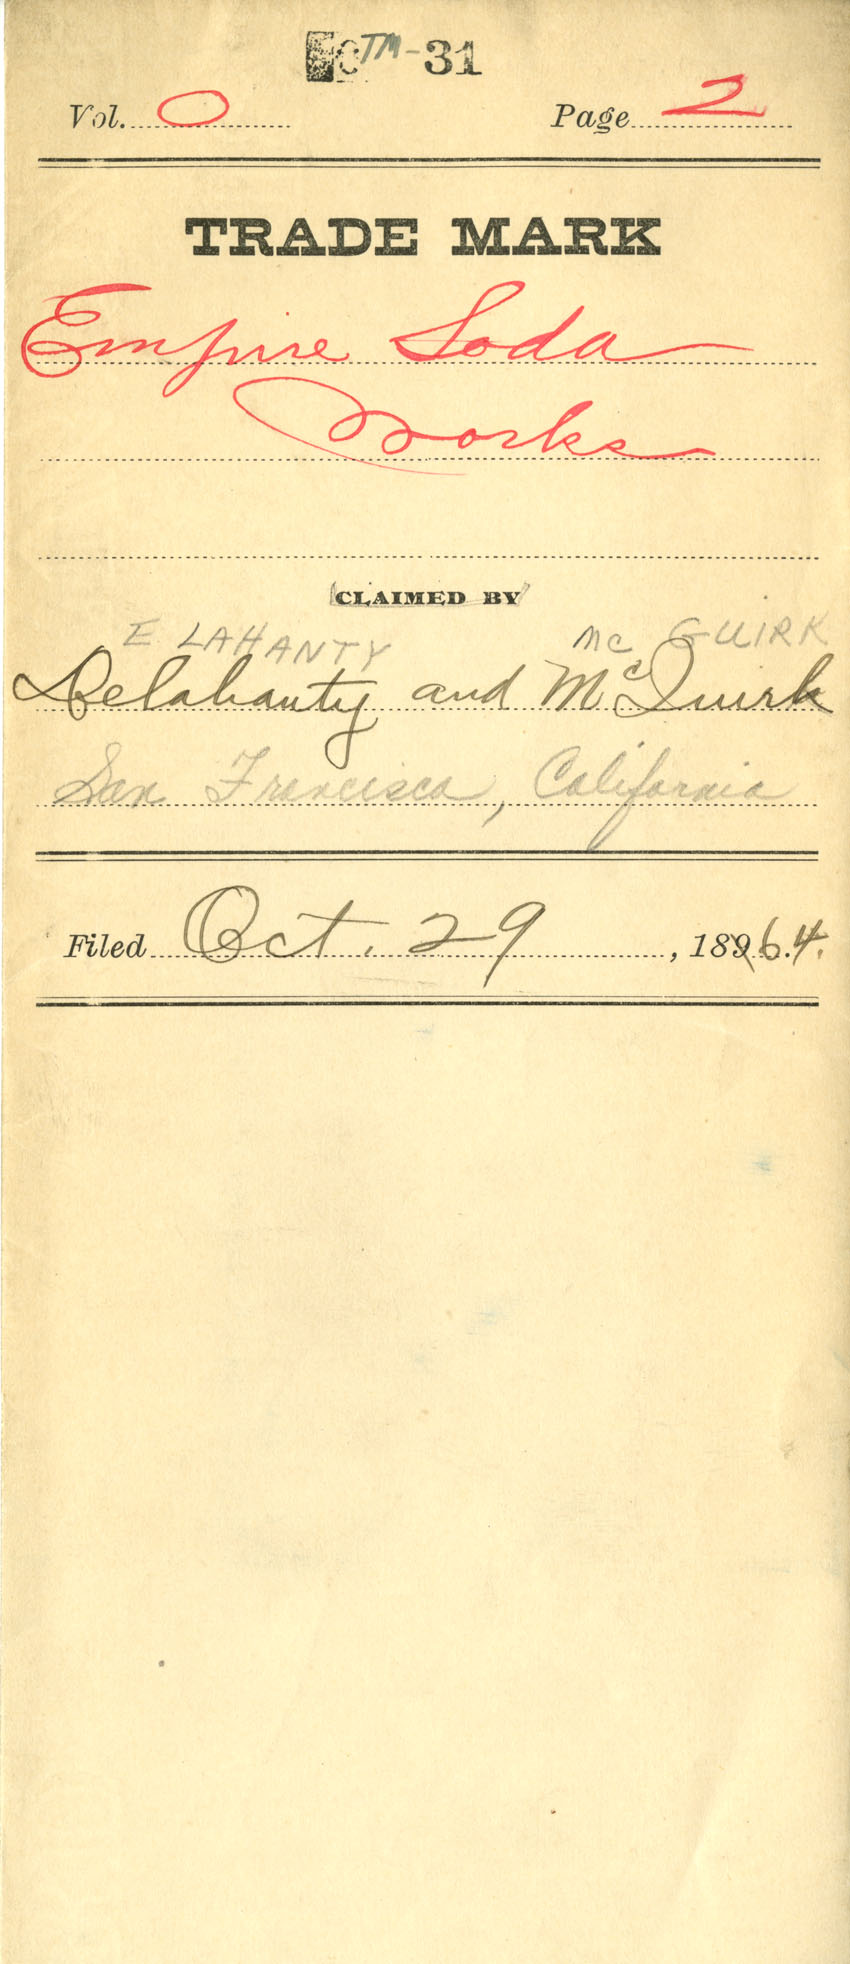 TM-31
Vol. 0 Page 2
TRADE MARK
Empire Soda
Works
CLAIMED BY
E LAHANTY Mc GUIRK
Delahanty and McGuirk
San Francisco, California
Filed Oct. 29, 18964.